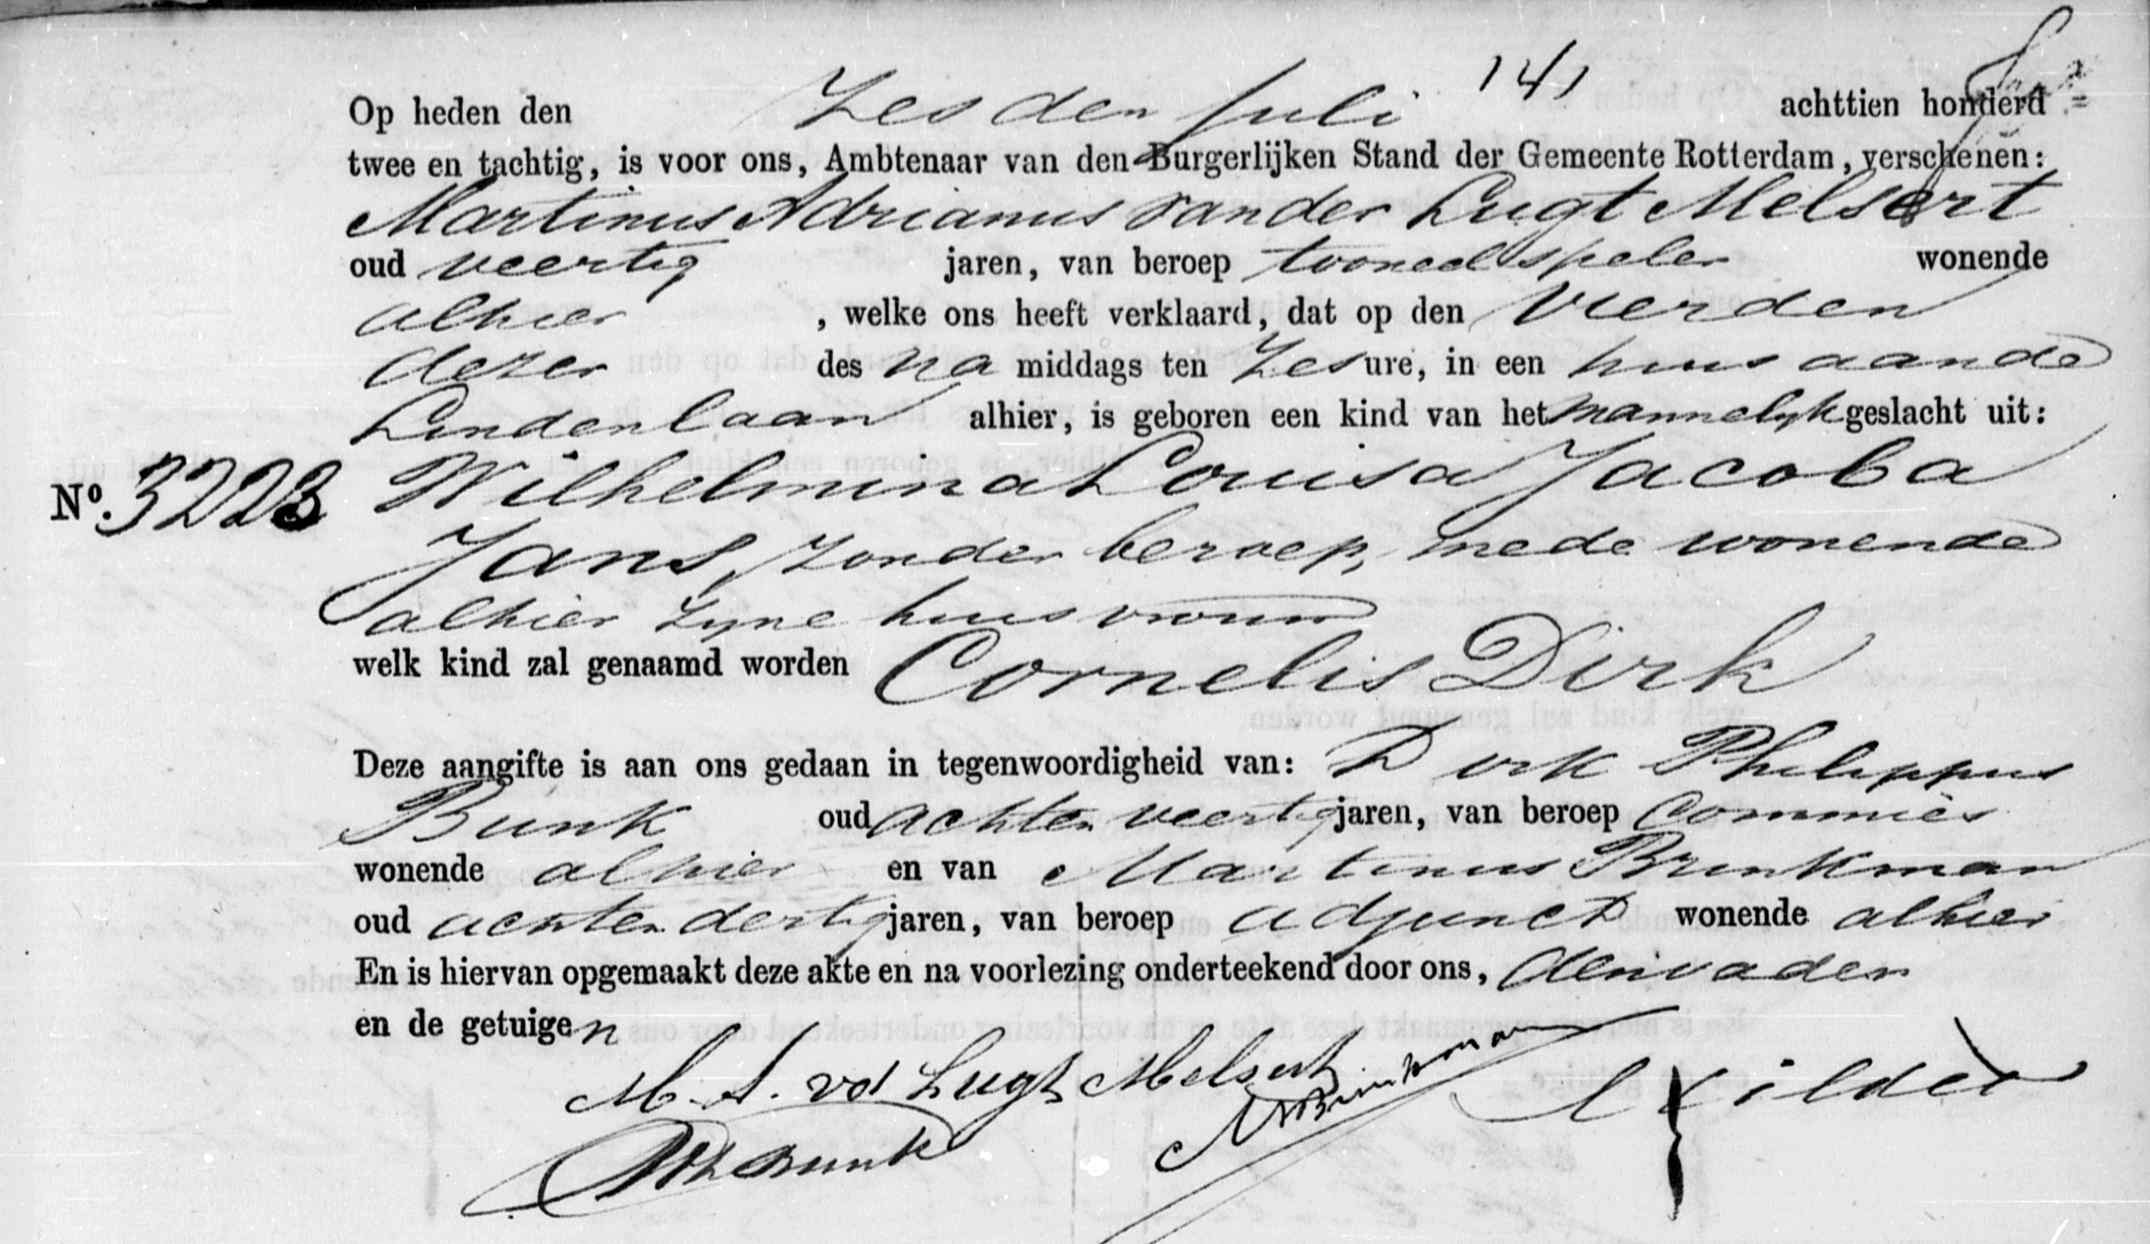 141
Op heden den Zesden Juli achttien honderd
twee en tachtig, is voor ons, Ambtenaar van den Burgerlijken Stand der Gemeente Rotterdam, verschenen:
Martinus Adrianus van der Lugt Melsert
oud veertig jaren, van beroep tooneelspeler wonende
alhier , welke ons heeft verklaard, dat op den vierden
dezer des na middags ten Zes ure, in een huis aan de
Lindenlaan alhier, is geboren een kind van het mannelyk geslacht uit:
No. 3223 Wilhelmina Louisa Jacoba
Jans, zonder beroep, mede wonende
alhier zyne huisvrouw
welk kind zal genaamd worden Cornelis Dirk
Deze aangifte is aan ons gedaan in tegenwoordigheid van: Dirk Philippus
Bunk oud achtenveertig jaren, van beroep Commies
wonende alhier en van Martinus Brinkman
oud achtendertig jaren, van beroep adjunct wonende alhier
En is hiervan opgemaakt deze akte en na voorlezing onderteekend door ons, den vader
en de getuigen
M. A. vd Lugt Melsert
MBrinkman
DPhBunk